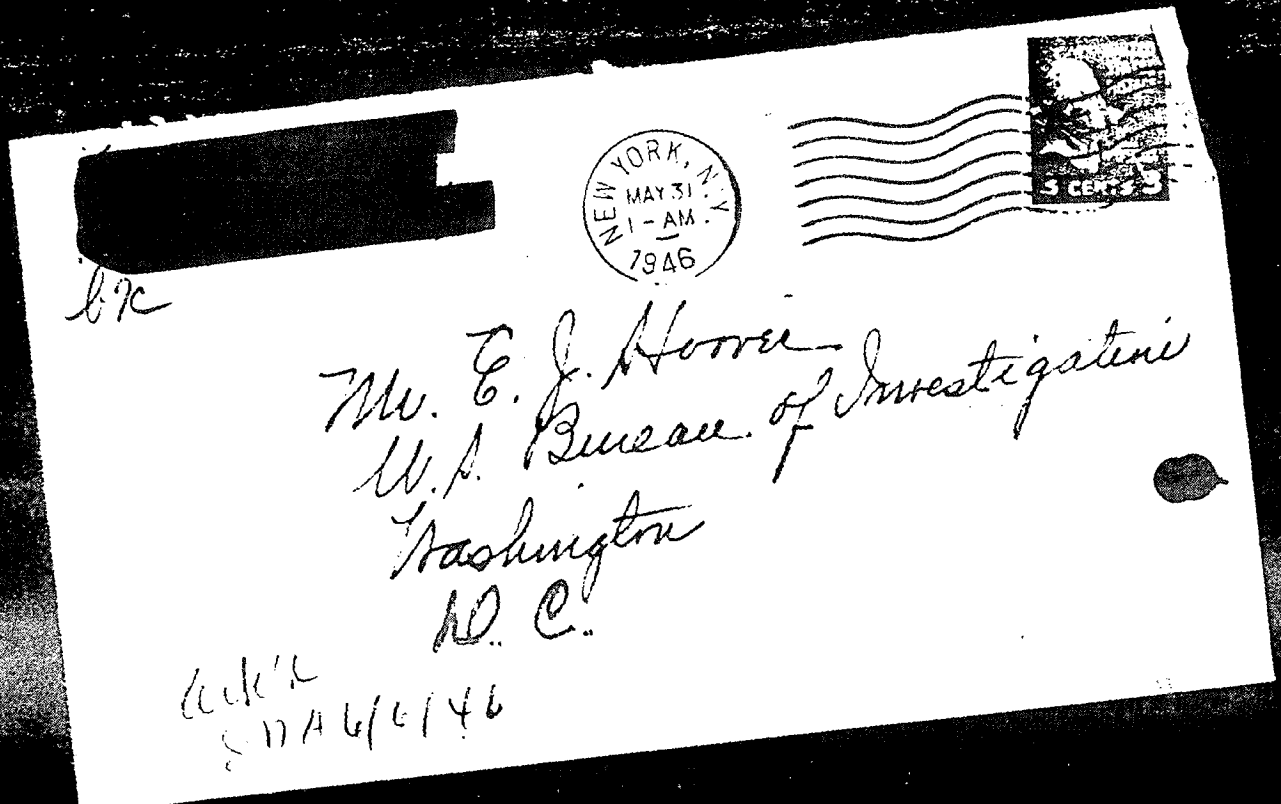 NEW YORK, N.Y.
MAY 31
1 - AM
1946
3 CENTS 3
b7c
Mr. E. J. Hoover
U.S. Bureau of Investigation
Washington
D. C.
Ack'd
6/6/46